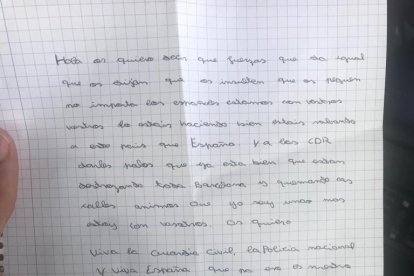 Hola os quiero decir que fuerzas que da igual
que os digan que os insulten que os peguen
no importa los españoles estamos con vosotros
vosotros lo estais haciendo bien estais salvando
a este pais que España y a los CDR
darles palos que ya esta bien que estan
destrozando toda Barcelona y quemando las
calles animos que yo soy unos mas
estoy con vosotros. Os quiero
Viva la Guardia Civil, la Policia nacional
y viva España que no era os